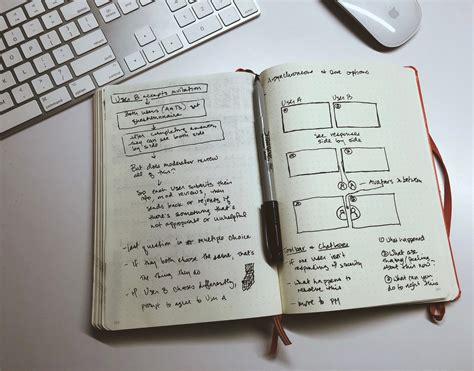 User B accepts invitation
Both users (A+B) get
questionnaire
After completing answers,
they can see both side
by side
But does moderator review
all of this?
So each user submits their
mod reviews, they
sends back or rejects if
there's something that's
not appropriate or unhelpful
- last question is multiple choice
- If they both choose the same, that's
the thing they do
- If User B chooses differently,
prompt to agree to User A
Asynchronous options
User A User B
See responses
side by side
Avatars in between
Toolbar + Chatboxes
- If one user isn't
responding
- what happens to
resolve this
- more to PM
① What happened
② What are
you feeling
about this now
③ What can you
do to right this